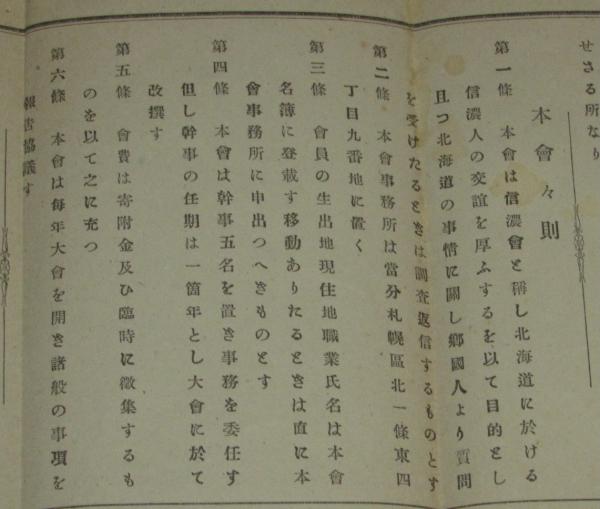 せさる所なり
本會々則
第一條　本會は信濃會と稱し北海道に於ける
信濃人の交誼を厚ふするを以て目的とし
且つ北海道の事情に關し鄕國人より質問
を受けたるときは調査返信するものとす
第二條　本會事務所は當分札幌區北一條東四
丁目九番地に置く
第三條　會員の生出地現住地職業氏名は本會
名簿に登載す移動ありたるときは直に本
會事務所に申出つへきものとす
第四條　本會は幹事五名を置き事務を委任す
但し幹事の任期は一箇年とし大會に於て
改撰す
第五條　會費は寄附金及ひ臨時に徵集するも
のを以て之に充つ
第六條　本會は每年大會を開き諸般の事項を
報告協議す